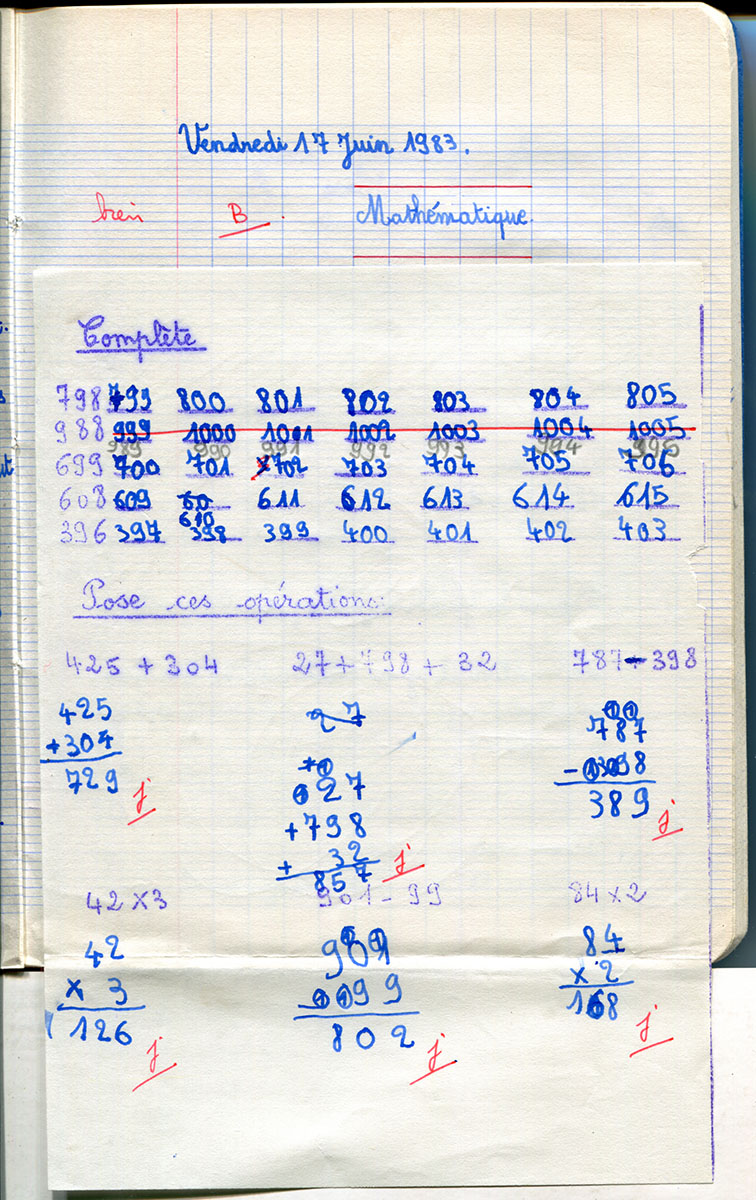 Vendredi 17 Juin 1983.
bien B. Mathématique
Complète
798 799 800 801 802 803 804 805
988 999 1000 1001 1002 1003 1004 1005
989 990 991 992 993 994 995
699 700 701 702 703 704 705 706
608 609 60 611 612 613 614 615
610
396 397 398 399 400 401 402 403
Pose ces opérations:
425 + 304 27 + 798 + 32 787 - 398
425
+304
729 j
27
+1
1 27
+798
+ 32
857 j
11
787
-1398
389 j
42 x 3 901 - 99 84 x 2
42
x 3
126 j
901
- 1199
802 j
84
x 2
168 j